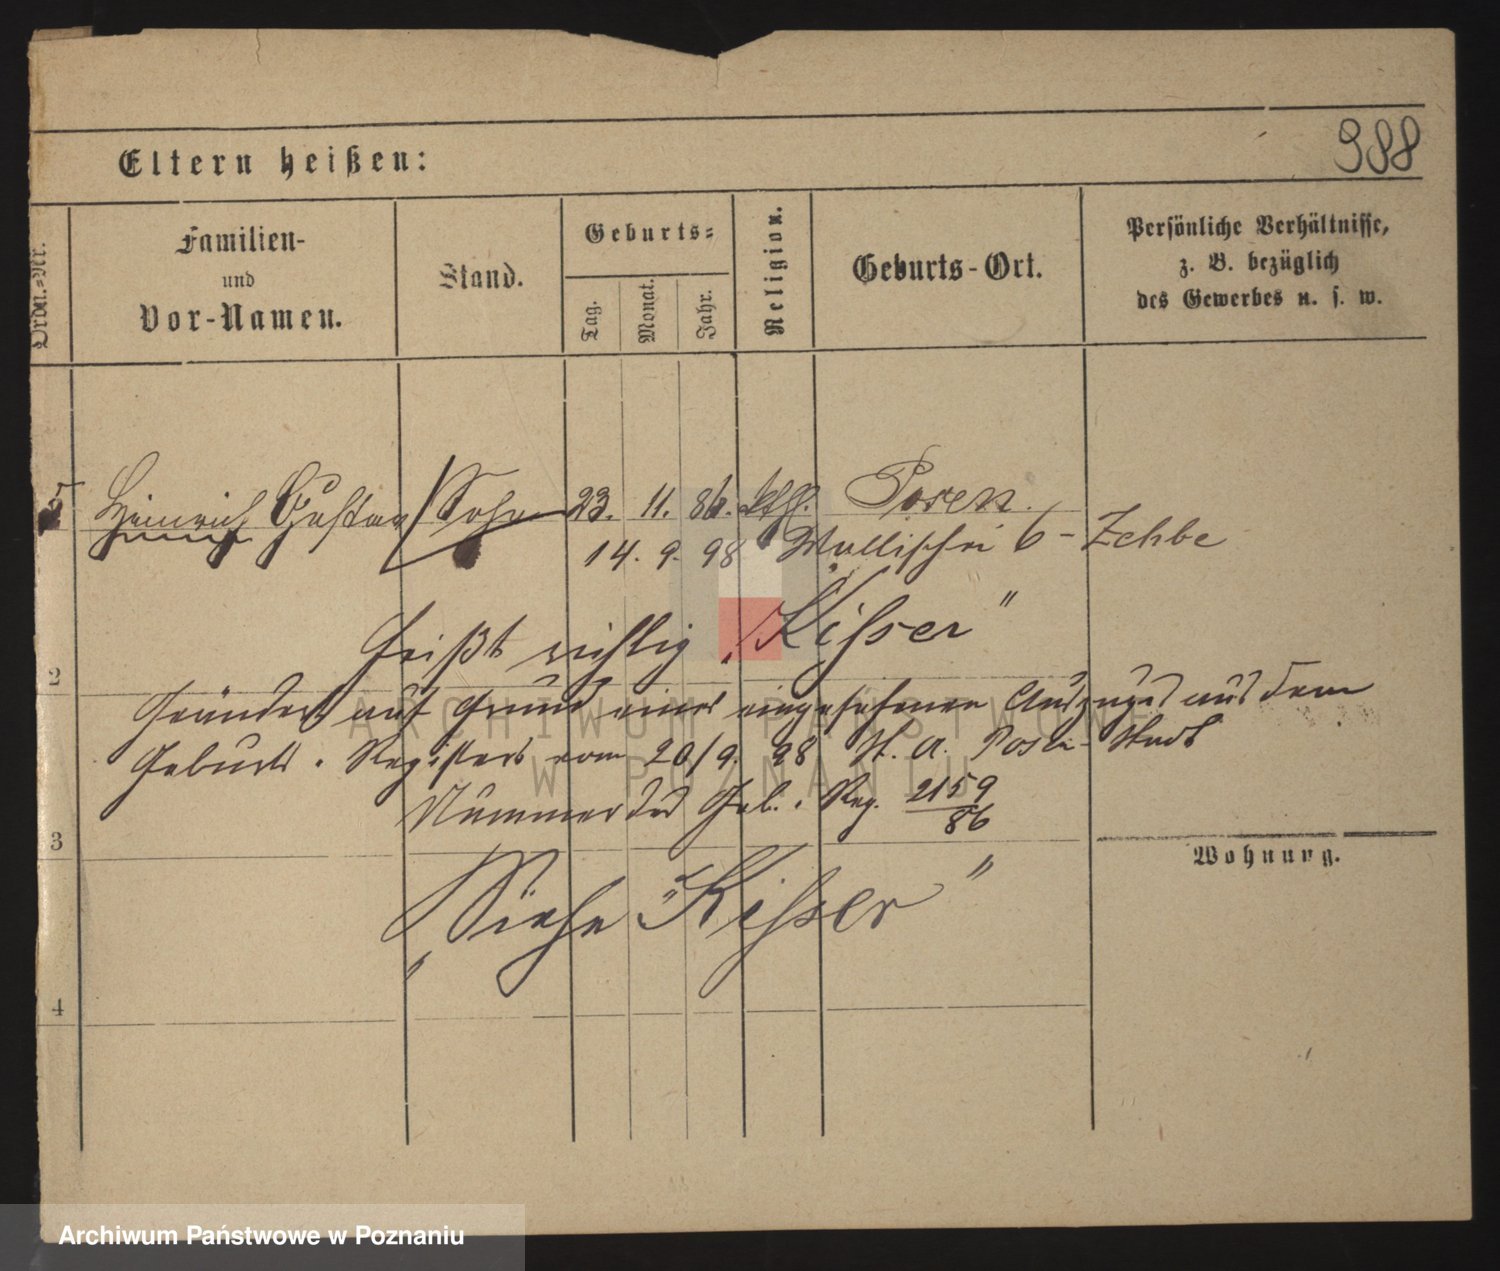 Eltern heißen:
988
Ordn.-Nr.
Familien-
und
Vor-Namen.
Stand.
Geburts-
Tag.
Monat.
Jahr.
Religion.
Geburts-Ort.
Persönliche Verhältnisse,
z. B. bezüglich
des Gewerbes u. s. w.
5 Heinrich Gustav Sohn 23. 11. 86. kth. Posen.
14. 9. 98 Wallischei 6 - Zehbe
heißt richtig „Kisser"
2
Geändert auf Grund eines eingesehenen Auszuges aus dem
Geburts-Registers vom 20/9. 98 St. A. Posen-Stadt
Nummer des Geb.-Reg. 2159
86
3
Wohnung.
„Siehe „Kisser"
4
ARCHIWUM PAŃSTWOWE
W POZNANIU
Archiwum Państwowe w Poznaniu